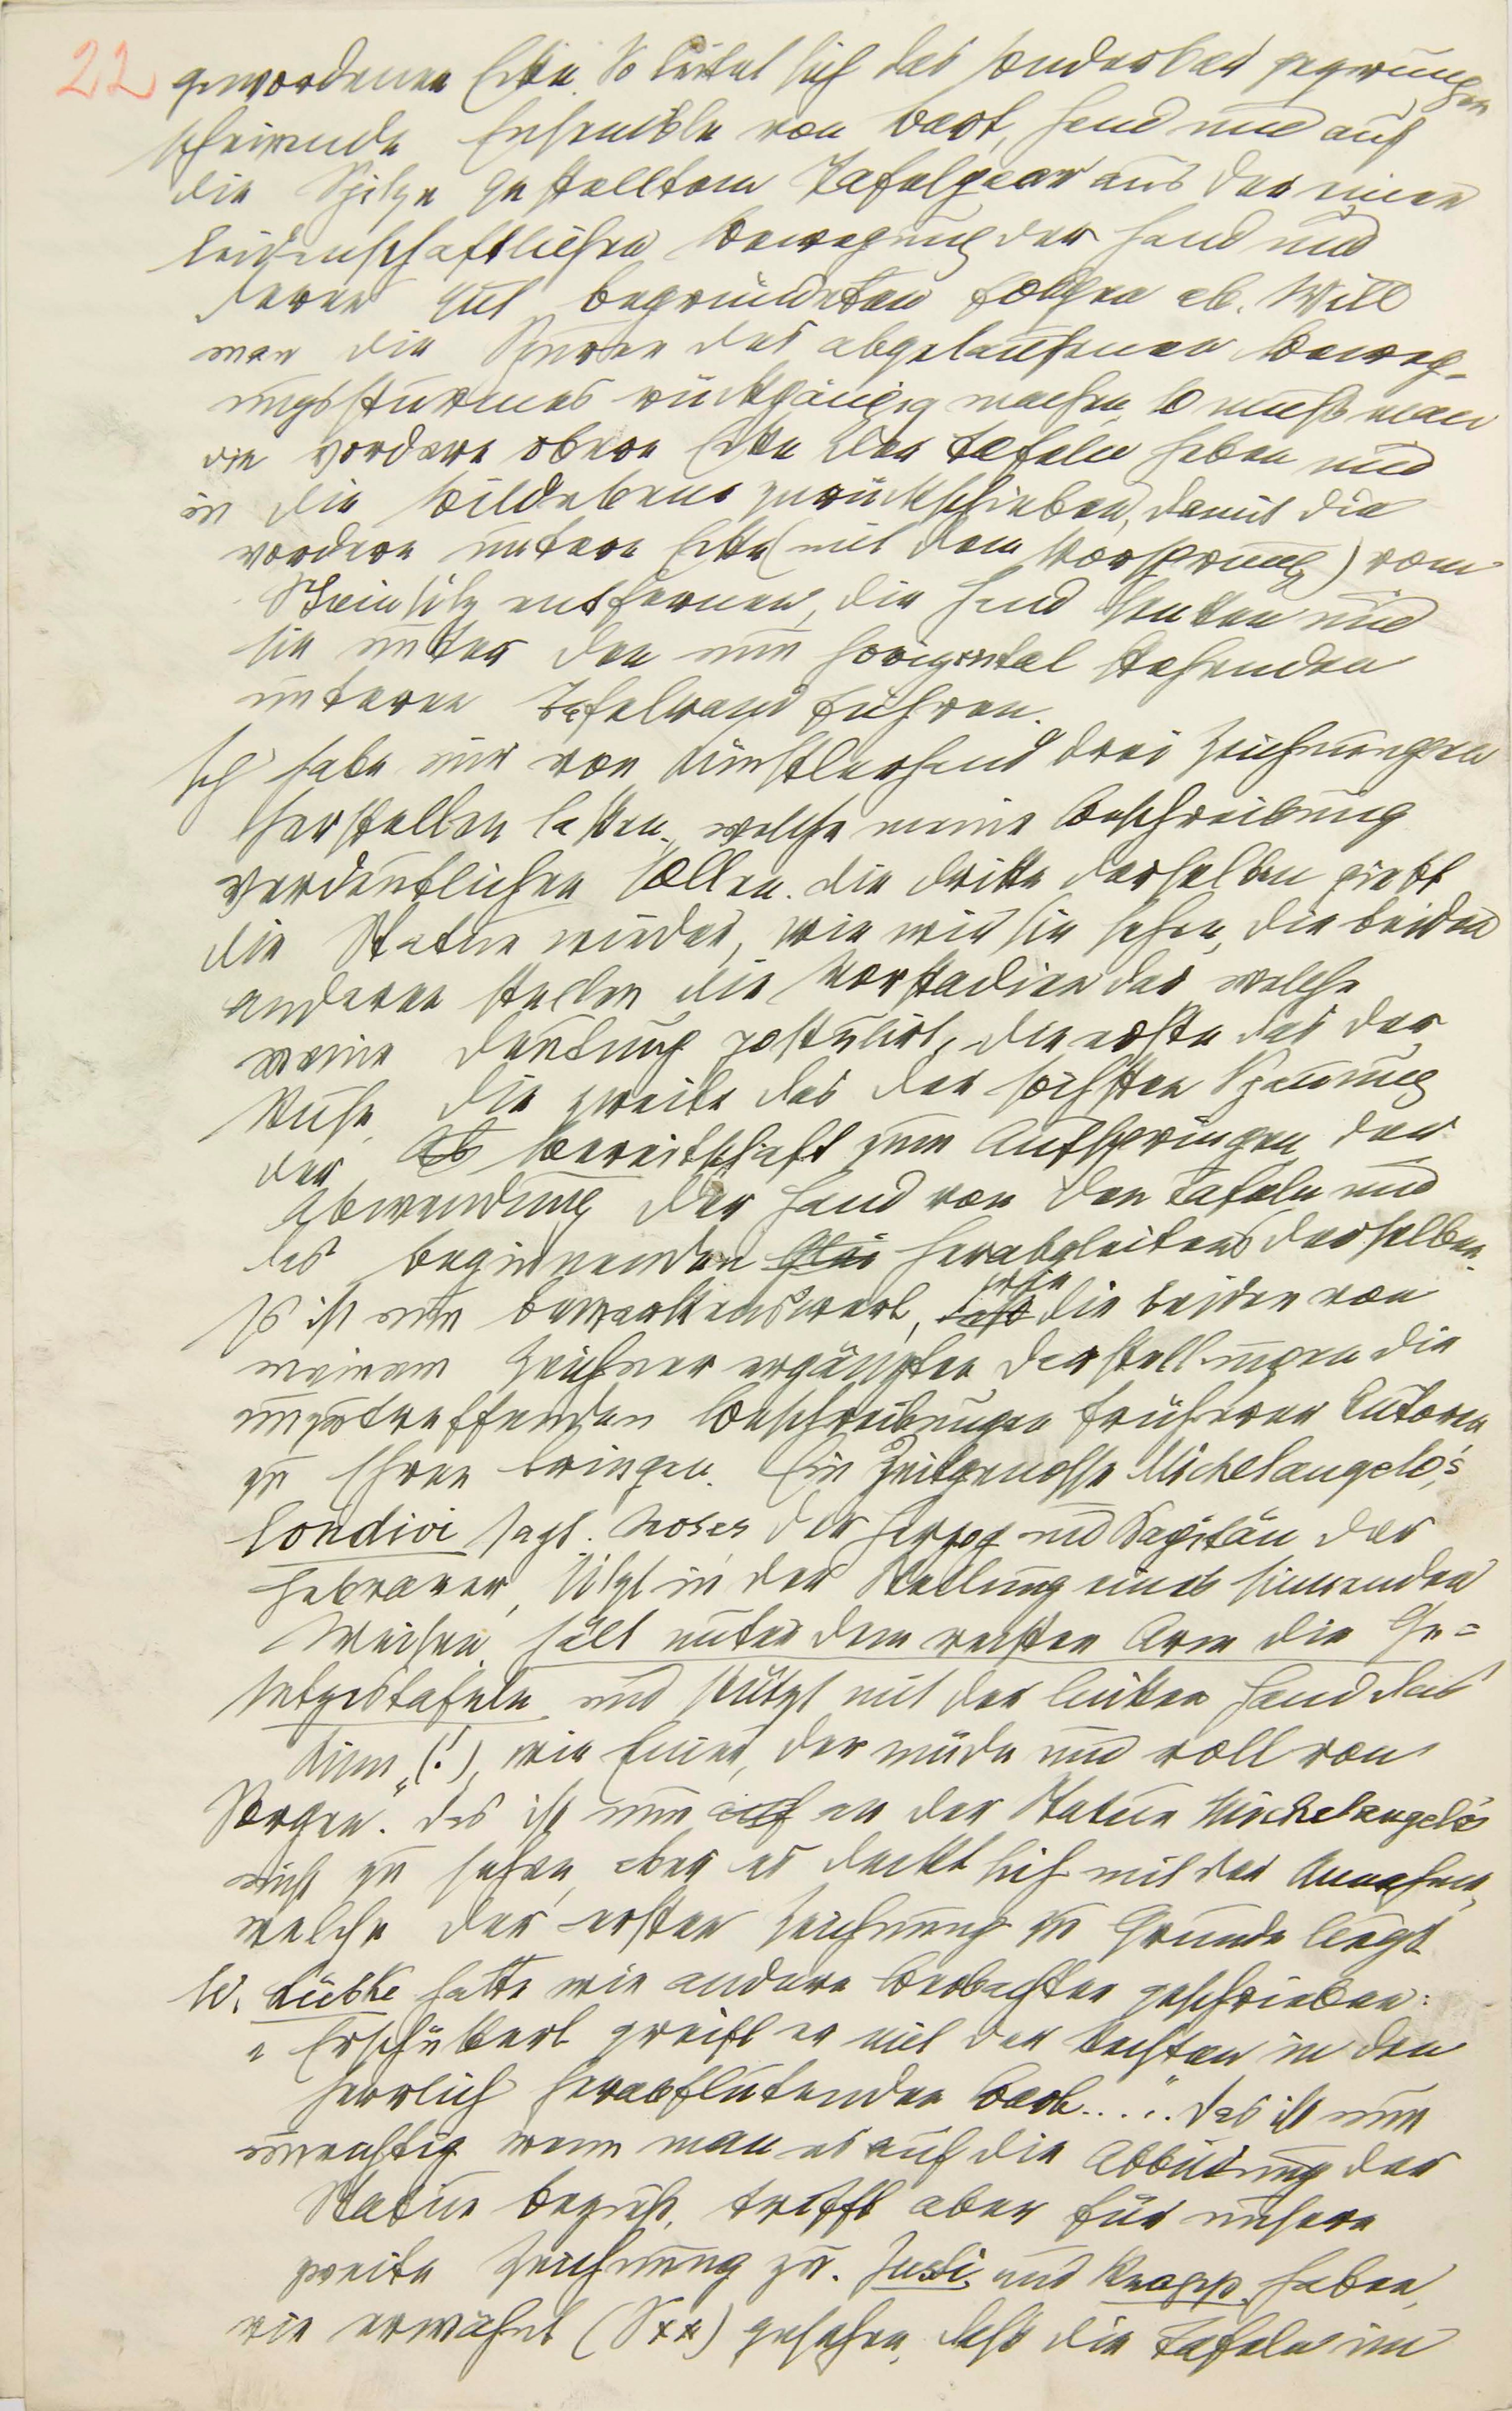 22
gewordenen Ecke. So leitet sich das sonderbar gezwungen
scheinende Ensemble von Bart, Hand und auf
die Spitze gestelltem Tafelpaar aus der einen
leidenschaftlichen Bewegung der Hand und
deren gut begründeten Folgen ab. Will
man die Spuren des abgelaufenen Beweg-
ungssturmes rückgängig machen, so muß man
die vordere obere Ecke der Tafeln heben und
in die Bildebene zurückschieben, damit die
vordere untere Ecke (mit dem Vorsprung) vom
Steinsitz entfernen, die Hand senken und
sie unter den nun horizontal stehenden
unteren Tafelrand führen.
Ich habe mir von Künstlerhand drei Zeichnungen
herstellen lassen, welche meine Beschreibung
verdeutlichen sollen. Die dritte derselben giebt
die Statue wieder, wie wir sie sehen, die beiden
anderen stellen die Vorstadien dar welche
meine Deutung postulirt, die erste das der
Ruhe, die zweite das der höchsten Spannung
der Bereitschaft zum Aufspringen, der
Abwendung der Hand von den Tafeln und
des beginnenden Herabgleitens derselben.
Es ist nun bemerkenswert, wie die beiden von
meinem Zeichner ergänzten Darstellungen die
unzutreffenden Beschreibungen früherer Autoren
zu Ehren bringen. Ein Zeitgenosse Michelangelo's,
Condivi sagt: Moses der Herzog und Kapitän der
Hebraeer, sitzt in der Stellung eines sinnenden
Weisen, hält unter dem rechten Arm die Ge=
setzestafeln und stützt mit der linken Hand das
Kinn (!), wie Einer, der müde und voll von
Sorgen." Das ist nun an der Statue Michelangelo's
nicht zu sehen, aber es deckt sich mit der Annahme,
welche der ersten Zeichnung zu Grunde liegt.
W. Lübke hatte wie andere Beobachter geschrieben:
„Erschüttert greift er mit der Rechten in den
herrlich herabflutenden Bart...." Das ist nun
unrichtig wenn man es auf die Abbildung der
Statue bezieht, trifft aber für unsere
zweite Zeichnung zu. Justi und Knapp haben,
wie erwähnt (S xx) gesehen, daß die Tafeln im